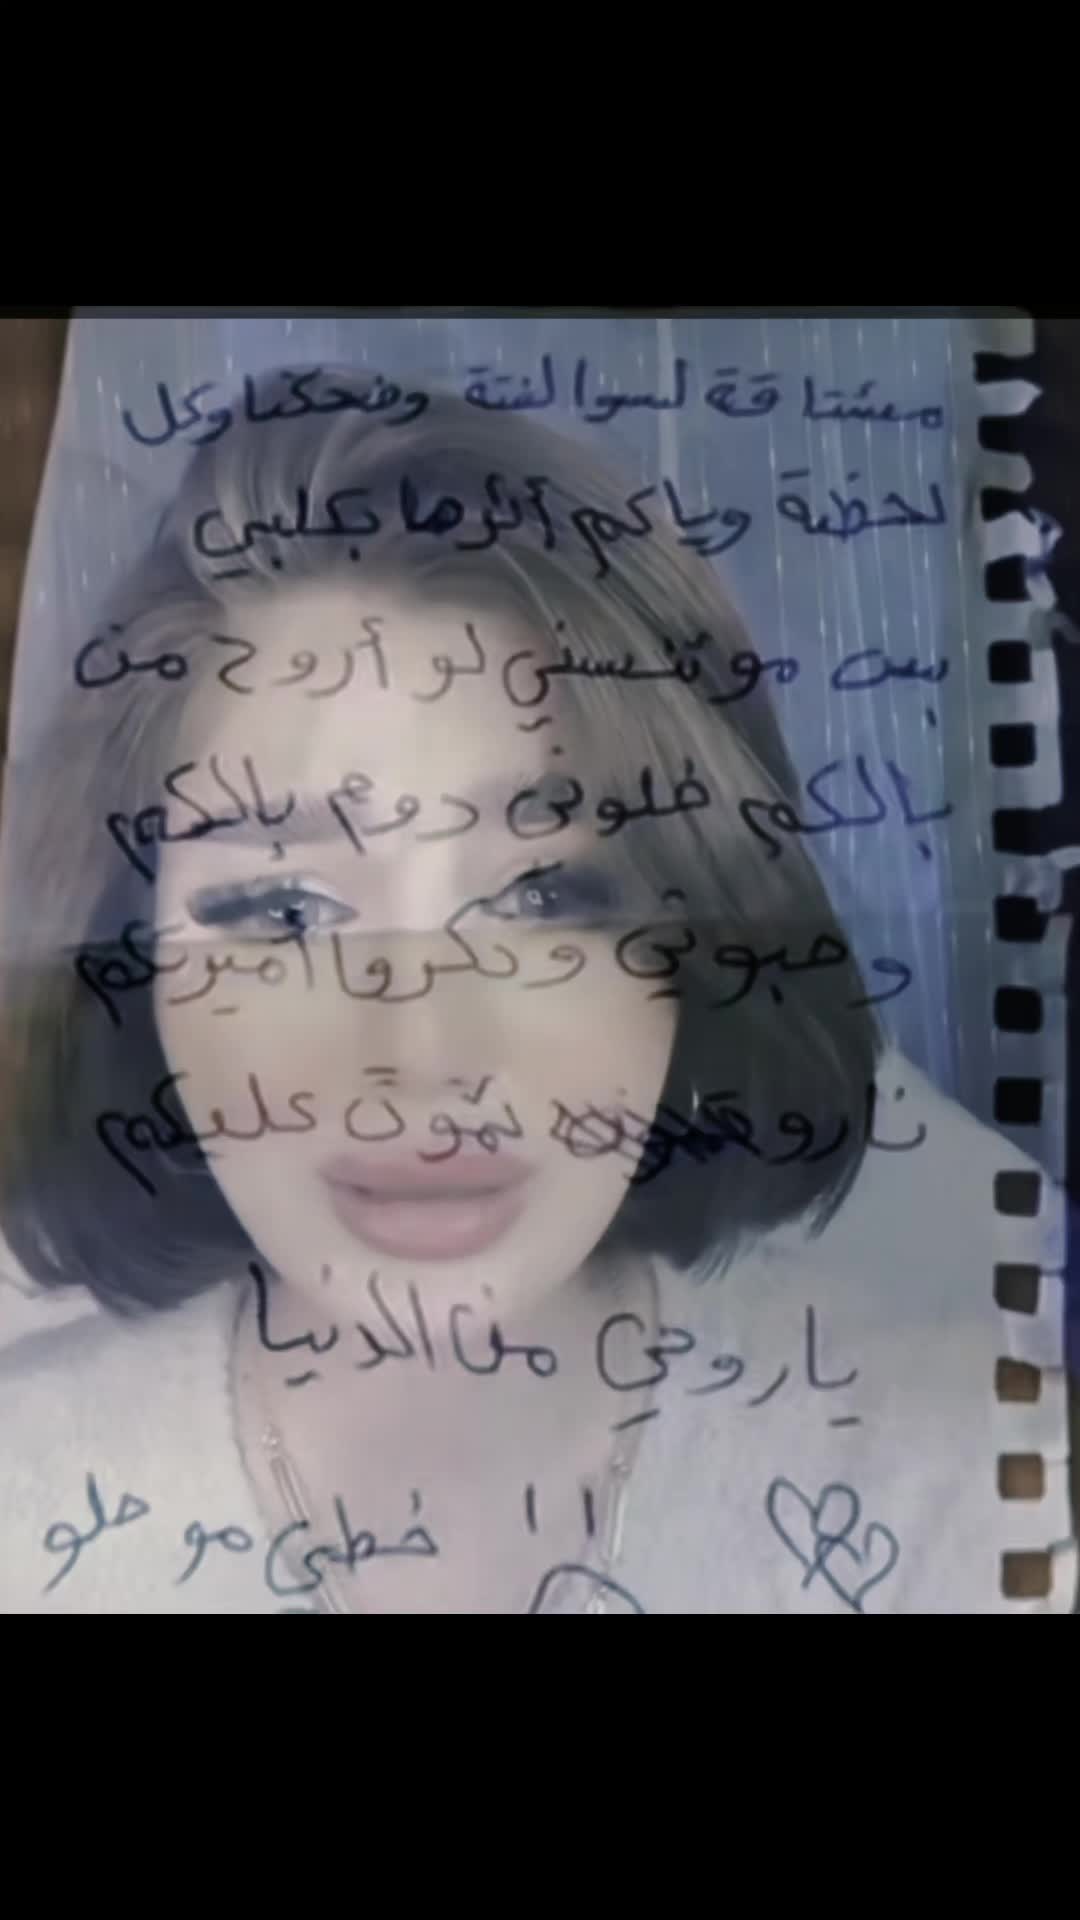 مشتاقة لسوالفتة وضحكتنا وكل
لحظة وياكم أثرها بكلبي
بس مو تنسني لو أروح من
بالكم خلوني دوم بالكم
وحبوني وذكروا أميرتكم
تموت عليكم
ياروحي من الدنيا
!! خطي مو حلو